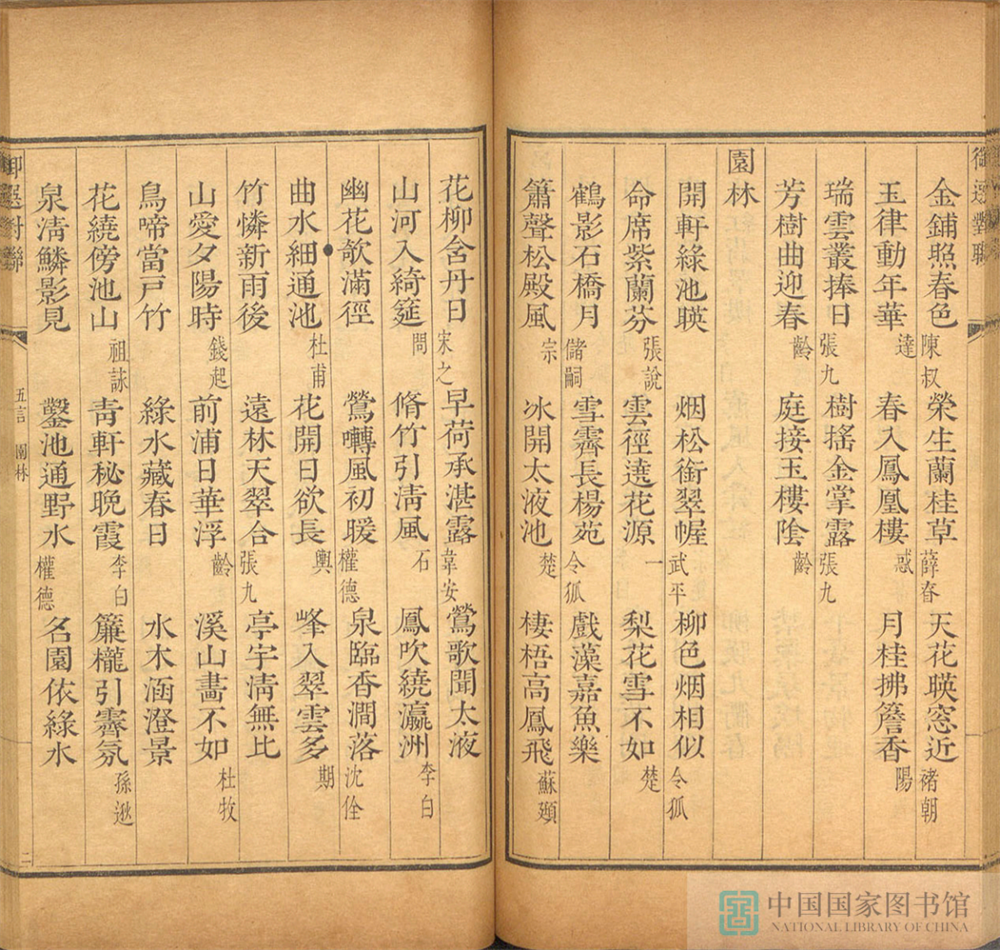 御選對聯
金鋪照春色 陳叔 榮生蘭桂草 薛眘 天花暎窓近 褚朝
玉律動年華 達 春入鳳凰樓 惑 月桂拂簷香 陽
瑞雲叢捧日 張九 樹搖金掌露 張九
芳樹曲迎春 齡 庭接玉樓陰 齡
園林
開軒綠池暎 烟松銜翠幄 武平 柳色烟相似 令狐
命席紫蘭芬 張說 雲徑遶花源 一 梨花雪不如 楚
鶴影石橋月 儲嗣 雪霽長楊苑 令狐 戲藻嘉魚樂
簫聲松殿風 宗 冰開太液池 楚 棲梧高鳳飛 蘇頲
花柳含丹日 宋之 早荷承湛露 韋安 鶯歌聞太液
山河入綺筵 問 脩竹引清風 石 鳳吹繞瀛洲 李白
幽花欹滿徑 鶯囀風初暖 權德 泉臨香澗落 沈佺
曲水細通池 杜甫 花開日欲長 輿 峰入翠雲多 期
竹憐新雨後 遠林天翠合 張九 亭宇清無比
山愛夕陽時 錢起 前浦日華浮 齡 溪山畫不如 杜牧
鳥啼當戶竹 綠水藏春日 水木涵澄景
花繞傍池山 祖詠 青軒秘晚霞 李白 簾櫳引霽氛 孫逖
泉清鱗影見 鑿池通野水 權德 名園依綠水
御選對聯 五言 園林 二
中国国家图书馆
NATIONAL LIBRARY OF CHINA